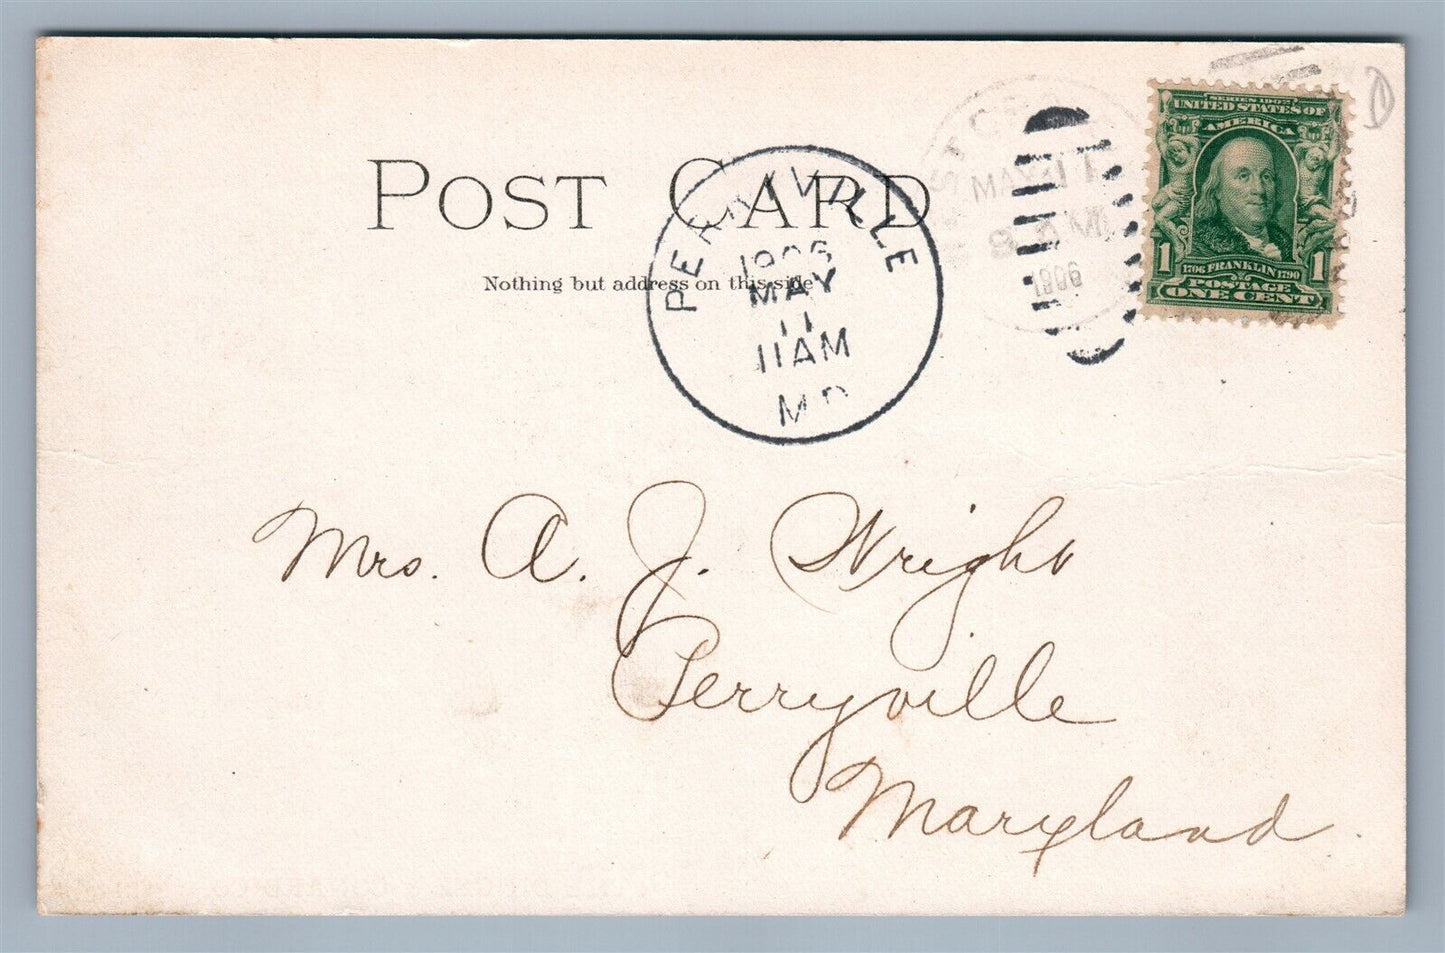 POST CARD
Nothing but address on this side
PERRYVILLE
1906
MAY
11
11 AM
MD
MAY 11
8 AM
1906
SERIES 1902
UNITED STATES OF
AMERICA
1 1706 FRANKLIN 1790 1
POSTAGE
ONE CENT
D
Mrs. A. J. Wright
Perryville
Maryland.